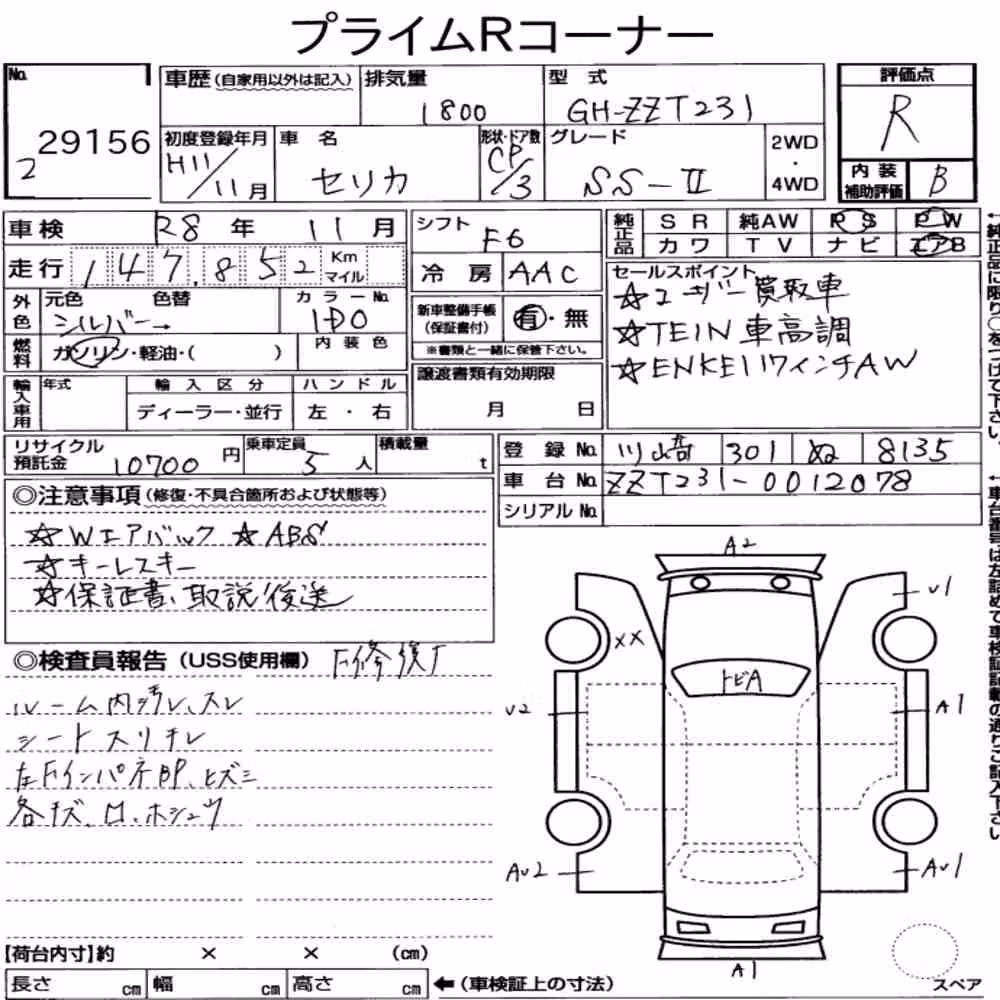 プライムRコーナー
No.
29156
2
車歴 (自家用以外は記入)
排気量
1800
型式
GH-ZZT231
評価点
R
初度登録年月
H11/11月
車名
セリカ
形状・ドア数
CP/3
グレード
SS-II
2WD・4WD
内装補助評価
B
車検 R8年 11月
走行 147,852 Km マイル
シフト
F6
冷房 AAC
純正品
SR 純AW PS PW
カワ TV ナビ エアB
外色
元色 色替
シルバー→
カラーNo.
1D0
燃料
ガソリン・軽油・( )
内装色
新車整備手帳(保証書付)
有・無
※書類と一緒に保管下さい。
セールスポイント
☆ユーザー買取車
☆TEIN車高調
☆ENKEI17インチAW
輸入車用
年式
輸入区分 ハンドル
ディーラー・並行 左・右
譲渡書類有効期限
月 日
リサイクル預託金 10700円
乗車定員 5人
積載量 t
登録No. 川崎 301 ぬ 8135
車台No. ZZT231-0012078
シリアルNo.
◎注意事項 (修復・不具合箇所および状態等)
☆Wエアバック ☆ABS
☆キーレスキー
☆保証書、取説後送
◎検査員報告 (USS使用欄) F修復有
ルーム内汚レ、スレ
シートスリキレ
左FインパネBP、ヒズミ
各キズ、凹、ホシュウ
A2
U1
XX
トビA
U2
A1
AU2
AU1
A1
スペア
【荷台内寸】約 × × (cm)
長さ cm 幅 cm 高さ cm ←(車検証上の寸法)
←純正品に限り○をつけて下さい。
←車台番号は左詰めで車検証記載の通りご記入下さい